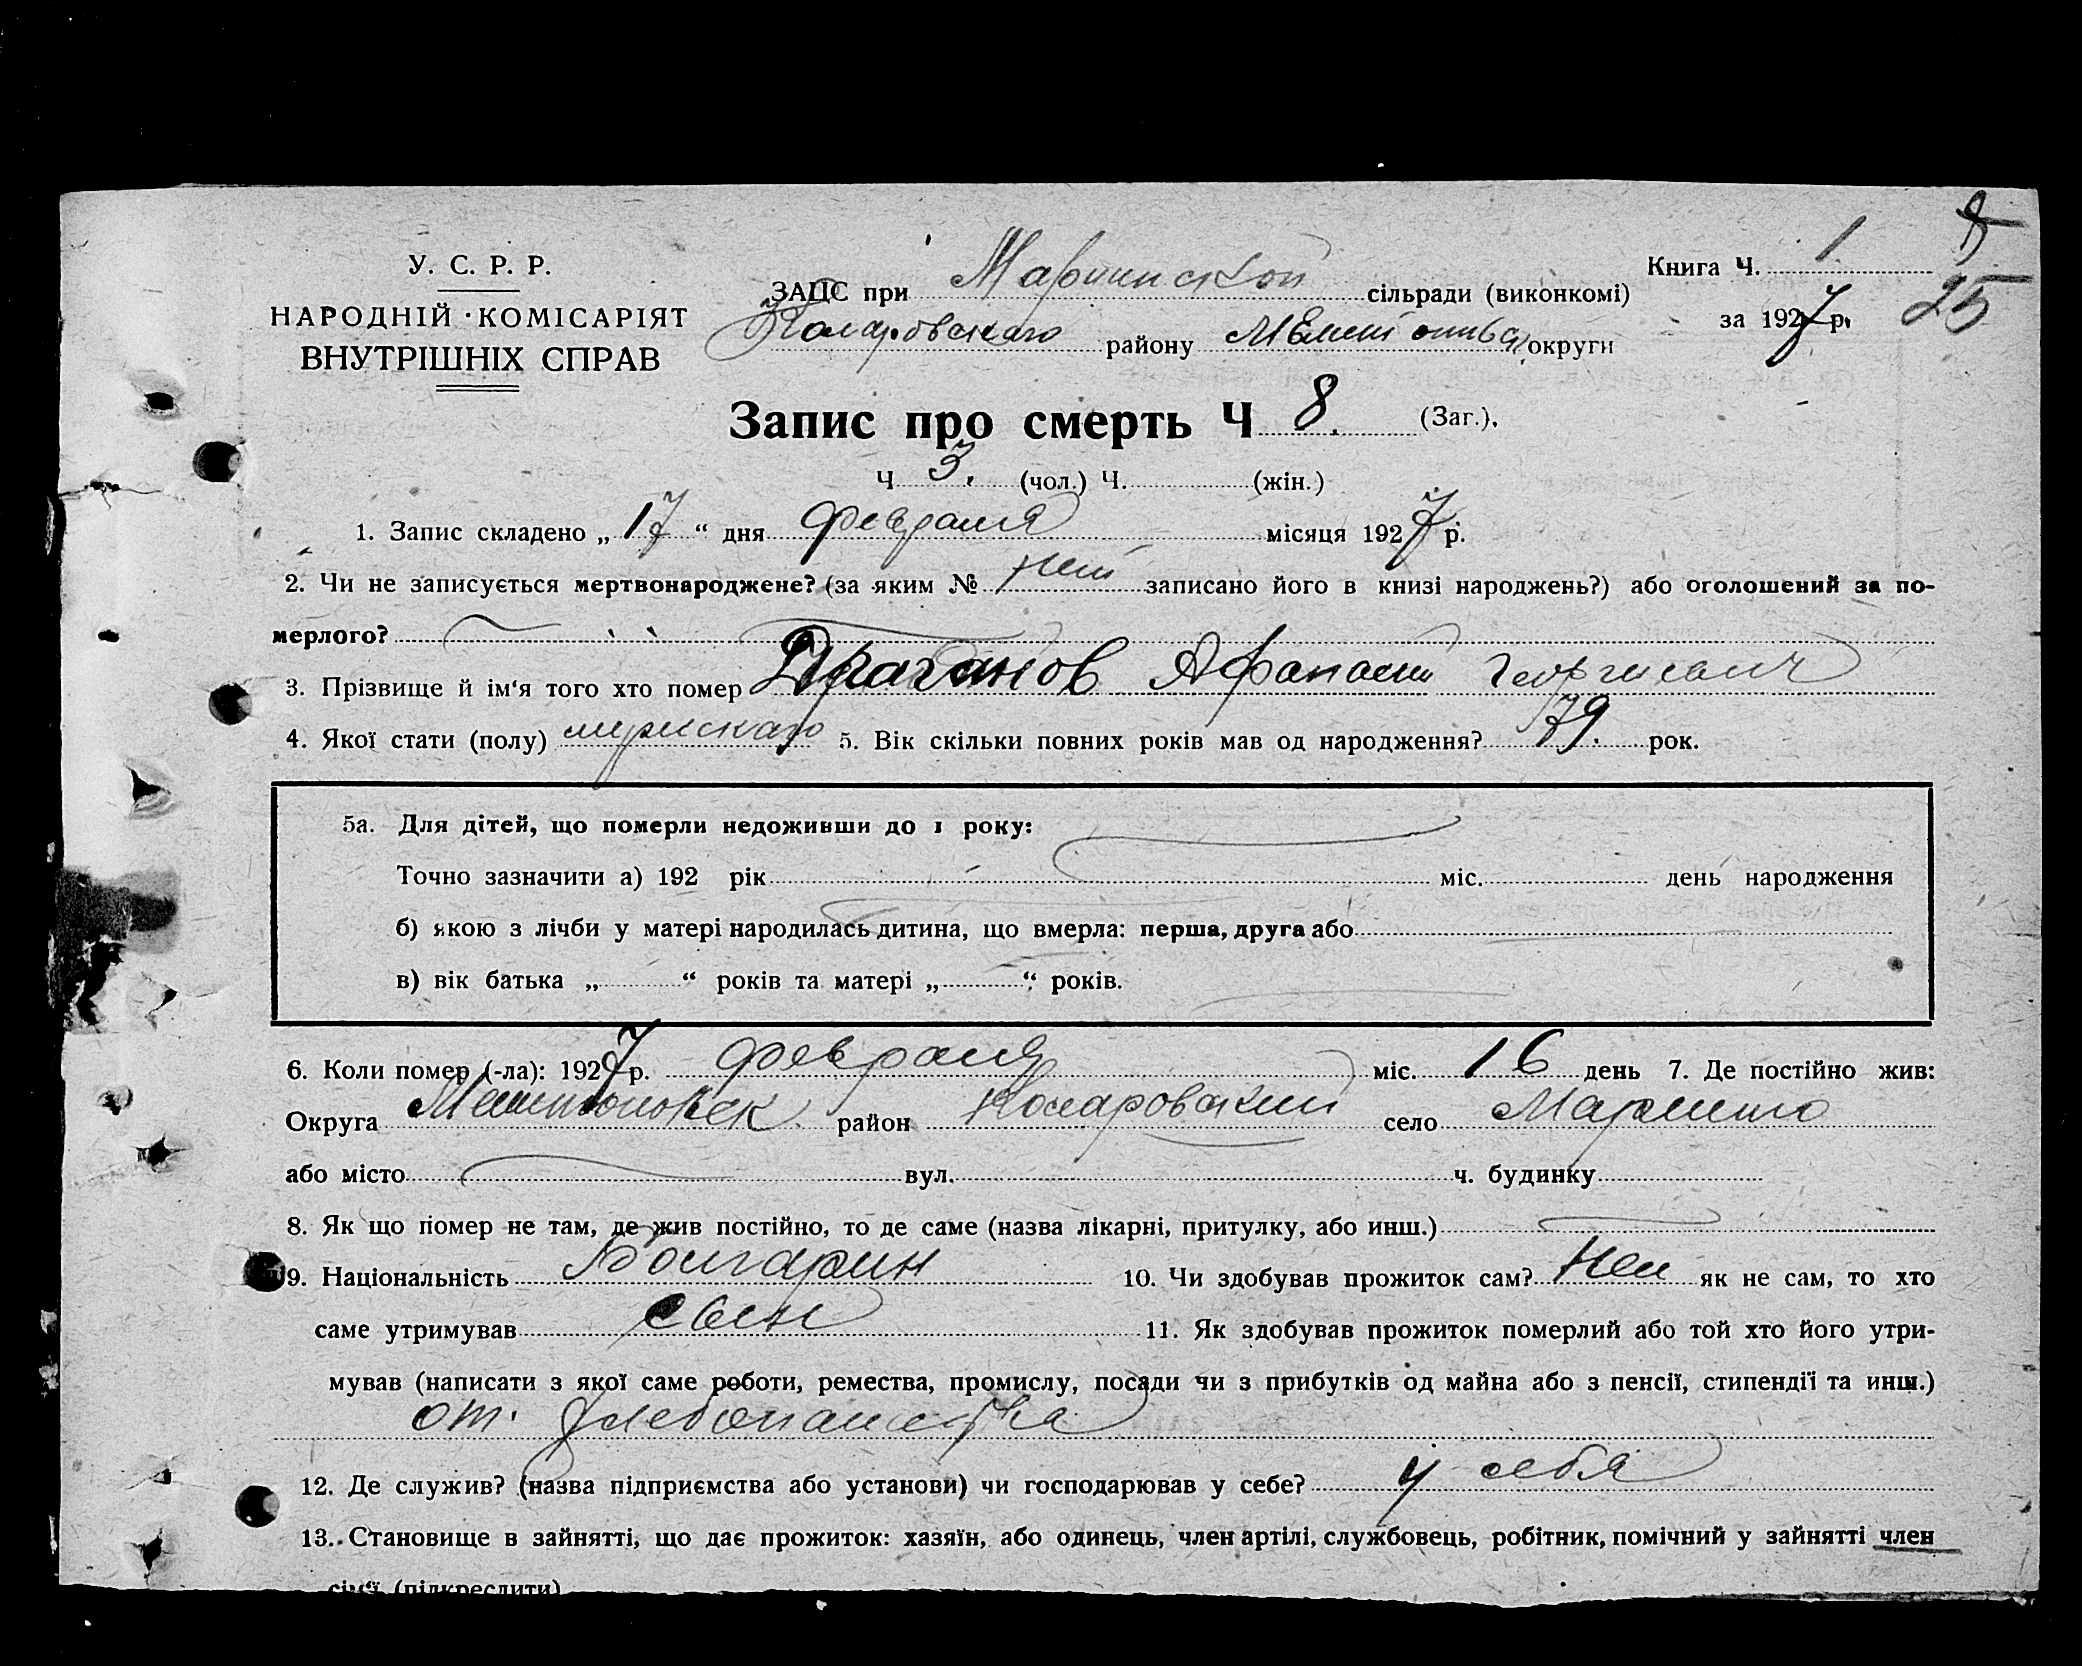 У. С. Р. Р.
НАРОДНІЙ КОМІСАРІЯТ
ВНУТРІШНІХ СПРАВ
ЗАЦС при Мариинской сільради (виконкомі)
Коларовского району округи
Книга Ч. 1
за 1927 р.
25
Запис про смерть Ч 8. (Заг.).
Ч 3. (чол.) Ч. (жін.)
1. Запис складено „ 17 “ дня февраля місяця 1927 р.
2. Чи не записується мертвонароджене? (за яким № нет записано його в книзі народжень?) або оголошений за по-
мерлого?
3. Прізвище й ім‘я того хто помер Драганов Афанасий Георгиевич
4. Якої стати (полу) мужскаго 5. Вік скільки повних років мав од народження? 79. рок.
5а. Для дітей, що померли недоживши до 1 року:
Точно зазначити а) 192 рік міс. день народження
б) якою з лічби у матері народилась дитина, що вмерла: перша, друга або
в) вік батька „ “ років та матері „ “ років.
6. Коли помер (-ла): 1927 р. февраля міс. 16 день 7. Де постійно жив:
Округа район Коларовский село Марьино
або місто вул. ч. будинку
8. Як що помер не там, де жив постійно, то де саме (назва лікарні, притулку, або инш.)
9. Національність Болгарин 10. Чи здобував прожиток сам? Нет як не сам, то хто
саме утримував сын 11. Як здобував прожиток померлий або той хто його утри-
мував (написати з якої саме роботи, ремества, промислу, посади чи з прибутків од майна або з пенсії, стипендії та инш.)
от хлебопашества
12. Де служив? (назва підприємства або установи) чи господарював у себе? у себя
13. Становище в зайнятті, що дає прожиток: хазяїн, або одинець, член артілі, службовець, робітник, помічний у зайнятті член
сім‘ї (підкреслити)